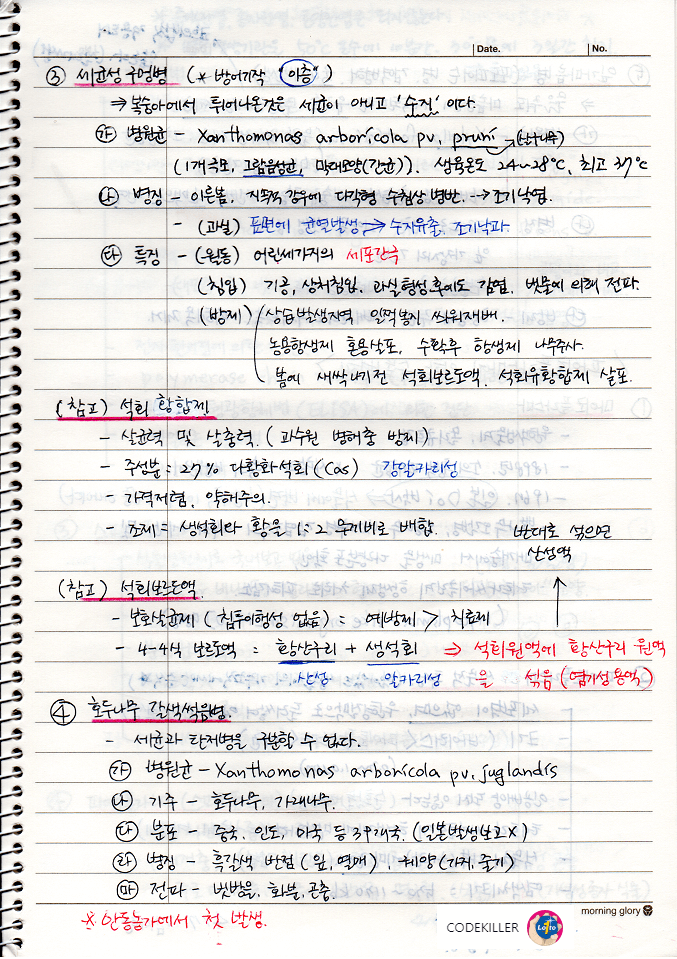 Date. No.
③ 세균성 구멍병 (* 방어기작 "이층")
⇒ 복숭아에서 튀어나온것은 세균이 아니고 '수지' 이다.
㉮ 병원균 - Xanthomonas arboricola pv. pruni → (살구나무)
(1개 극모, 그람음성균, 막대모양(간균)). 생육온도 24~28℃, 최고 37℃
㉯ 병징 - 이른봄, 지속적 강우에 다각형 수침상 병반. → 조기낙엽.
- (과실) 표면에 균열발생 → 수지유출, 조기낙과.
㉰ 특징 - (월동) 어린가지의 세포간극
(침입) 기공, 상처침입. 과실형성후에도 감염. 빗물에 의해 전파.
(방제) 상습발생지역 일찍봉지 씌워재배.
농용항생제 혼용살포, 수확후 항생제 나무주사.
봄에 새싹나기전 석회보르도액, 석회유황합제 살포.
(참고) 석회 황합제
- 살균력 및 살충력. (과수원 병해충 방제)
- 주성분 = 27% 다황화석회 (CaS) 강알카리성
- 가격저렴, 약해주의.
- 조제 = 생석회와 황을 1:2 무게비로 배합. 반대로 섞으면
산성액
(참고) 석회보르도액.
- 보호살균제 (침투이행성 없음) = 예방제 > 치료제
- 4-4식 보르도액 = 황산구리 + 생석회 ⇒ 석회원액에 황산구리 원액
산성 알카리성 을 섞음 (염기성용액)
④ 호두나무 갈색썩음병.
- 세균과 탄저병을 구분할 수 없다.
㉮ 병원균 - Xanthomonas arboricola pv. juglandis
㉯ 기주 - 호두나무, 가래나무.
㉰ 분포 - 중국, 인도, 미국 등 37개국. (일본발생보고X)
㉱ 병징 - 흑갈색 반점 (잎, 열매), 궤양 (가지, 줄기)
㉲ 전파 - 빗방울, 화분, 곤충.
※ 안동농가에서 첫 발생.
morning glory
CODEKILLER
Lotto